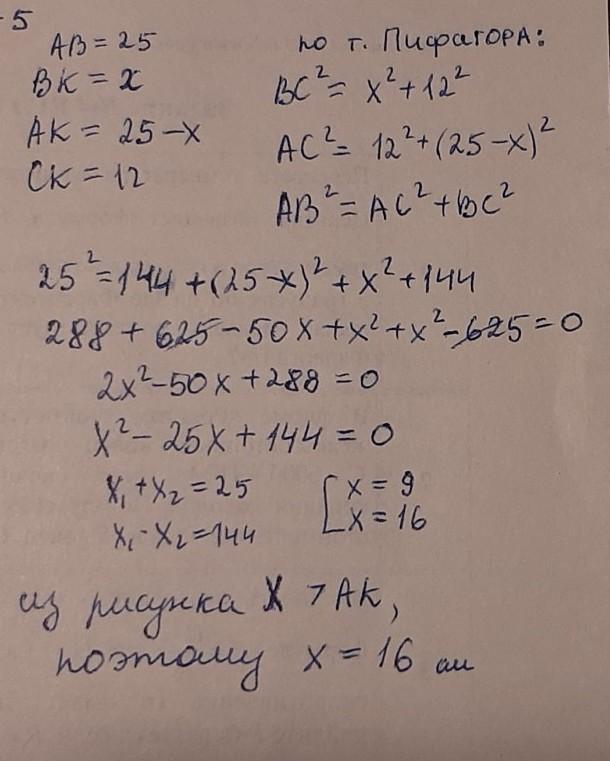 5
AB = 25
BK = x
AK = 25 - x
CK = 12
по т. Пифагора:
BC² = x² + 12²
AC² = 12² + (25 - x)²
AB² = AC² + BC²
25² = 144 + (25 - x)² + x² + 144
288 + 625 - 50x + x² + x² - 625 = 0
2x² - 50x + 288 = 0
x² - 25x + 144 = 0
x₁ + x₂ = 25
x₁ · x₂ = 144
[ x = 9
x = 16
из рисунка x > AK,
поэтому x = 16 см